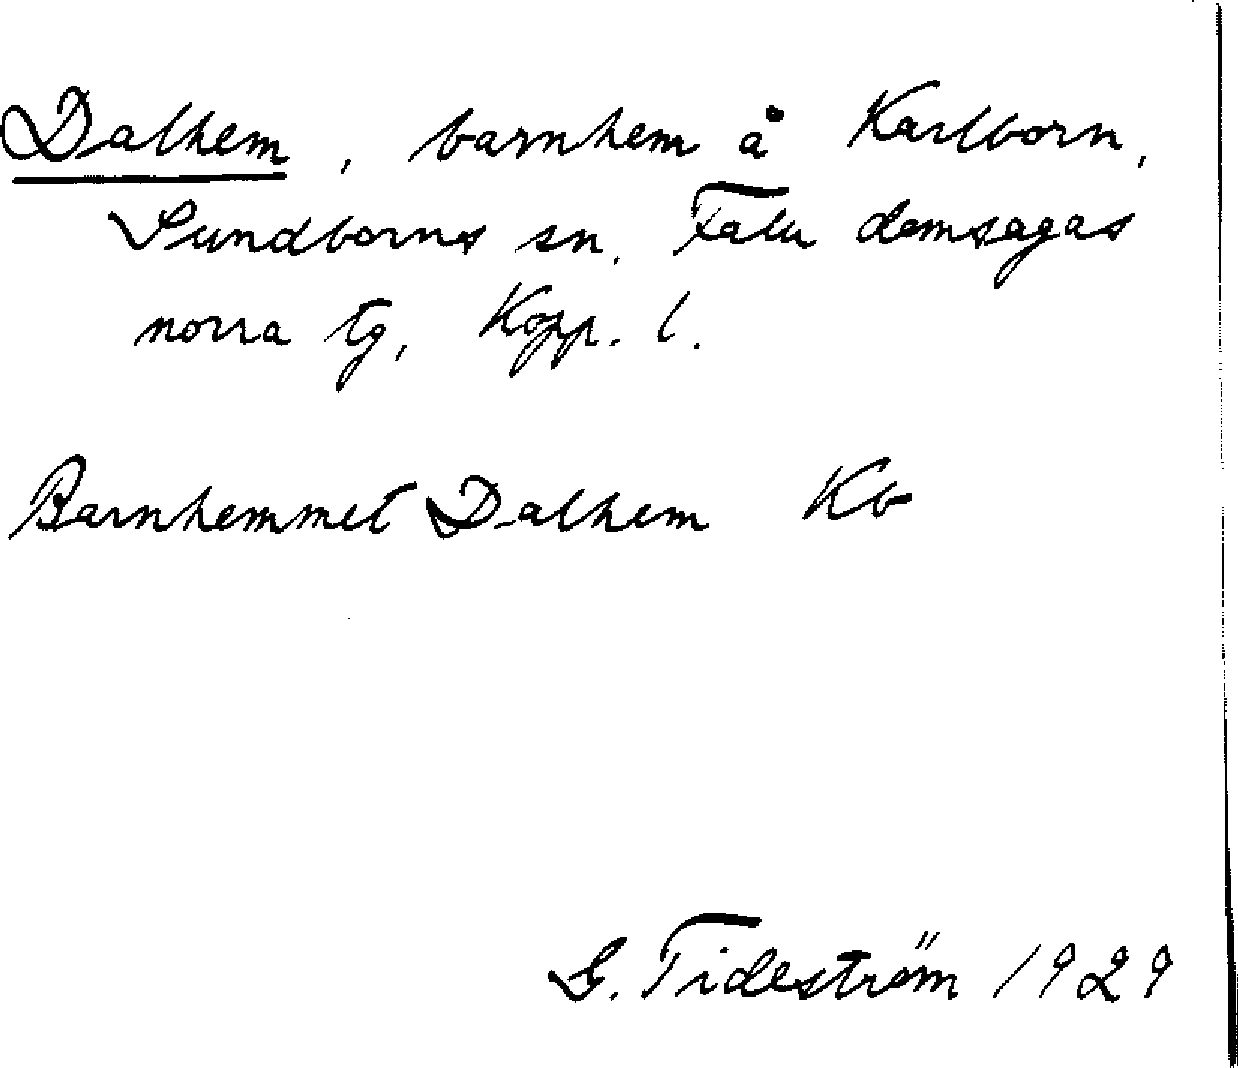 Dalhem, barnhem å Karlborn,
Sundborns sn. Falu domsagas
norra tg, Kopp. l.
Barnhemmet Dalhem Kb
G. Tideström 1929